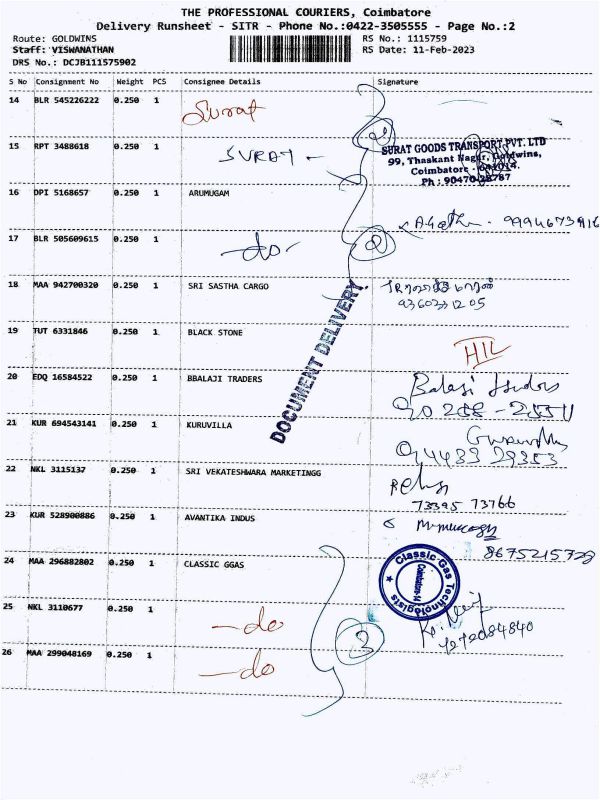 THE PROFESSIONAL COURIERS, Coimbatore
Delivery Runsheet - SITR - Phone No.:0422-3505555 - Page No.:2
Route: GOLDWINS RS No.: 1115759
Staff: VISWANATHAN RS Date: 11-Feb-2023
DRS No.: DCJB111575902
S No Consignment No Weight PCS Consignee Details Signature
14 BLR 545226222 0.250 1 Surat
15 RPT 3488618 0.250 1 SURAT
SURAT GOODS TRANSPORT PVT. LTD
99, Thaskant Nagar, Goldwins,
Coimbatore - 641014.
Ph : 90470 28787
16 DPI 5168657 0.250 1 ARUMUGAM
9994673916
17 BLR 505609615 0.250 1 -do-
18 MAA 942700320 0.250 1 SRI SASTHA CARGO
DOCUMENT DELIVERY
19 TUT 6331846 0.250 1 BLACK STONE
HIL
20 EDQ 16584522 0.250 1 BBALAJI TRADERS
Balaji
21 KUR 694543141 0.250 1 KURUVILLA
94433 29353
22 NKL 3115137 0.250 1 SRI VEKATESHWARA MARKETINGG
73395 73766
23 KUR 528900886 0.250 1 AVANTIKA INDUS
8675215728
24 MAA 296882802 0.250 1 CLASSIC GGAS
Classic Gas Technologists
Coimbatore-14
25 NKL 3110677 0.250 1 -do
3
26 MAA 299048169 0.250 1 -do